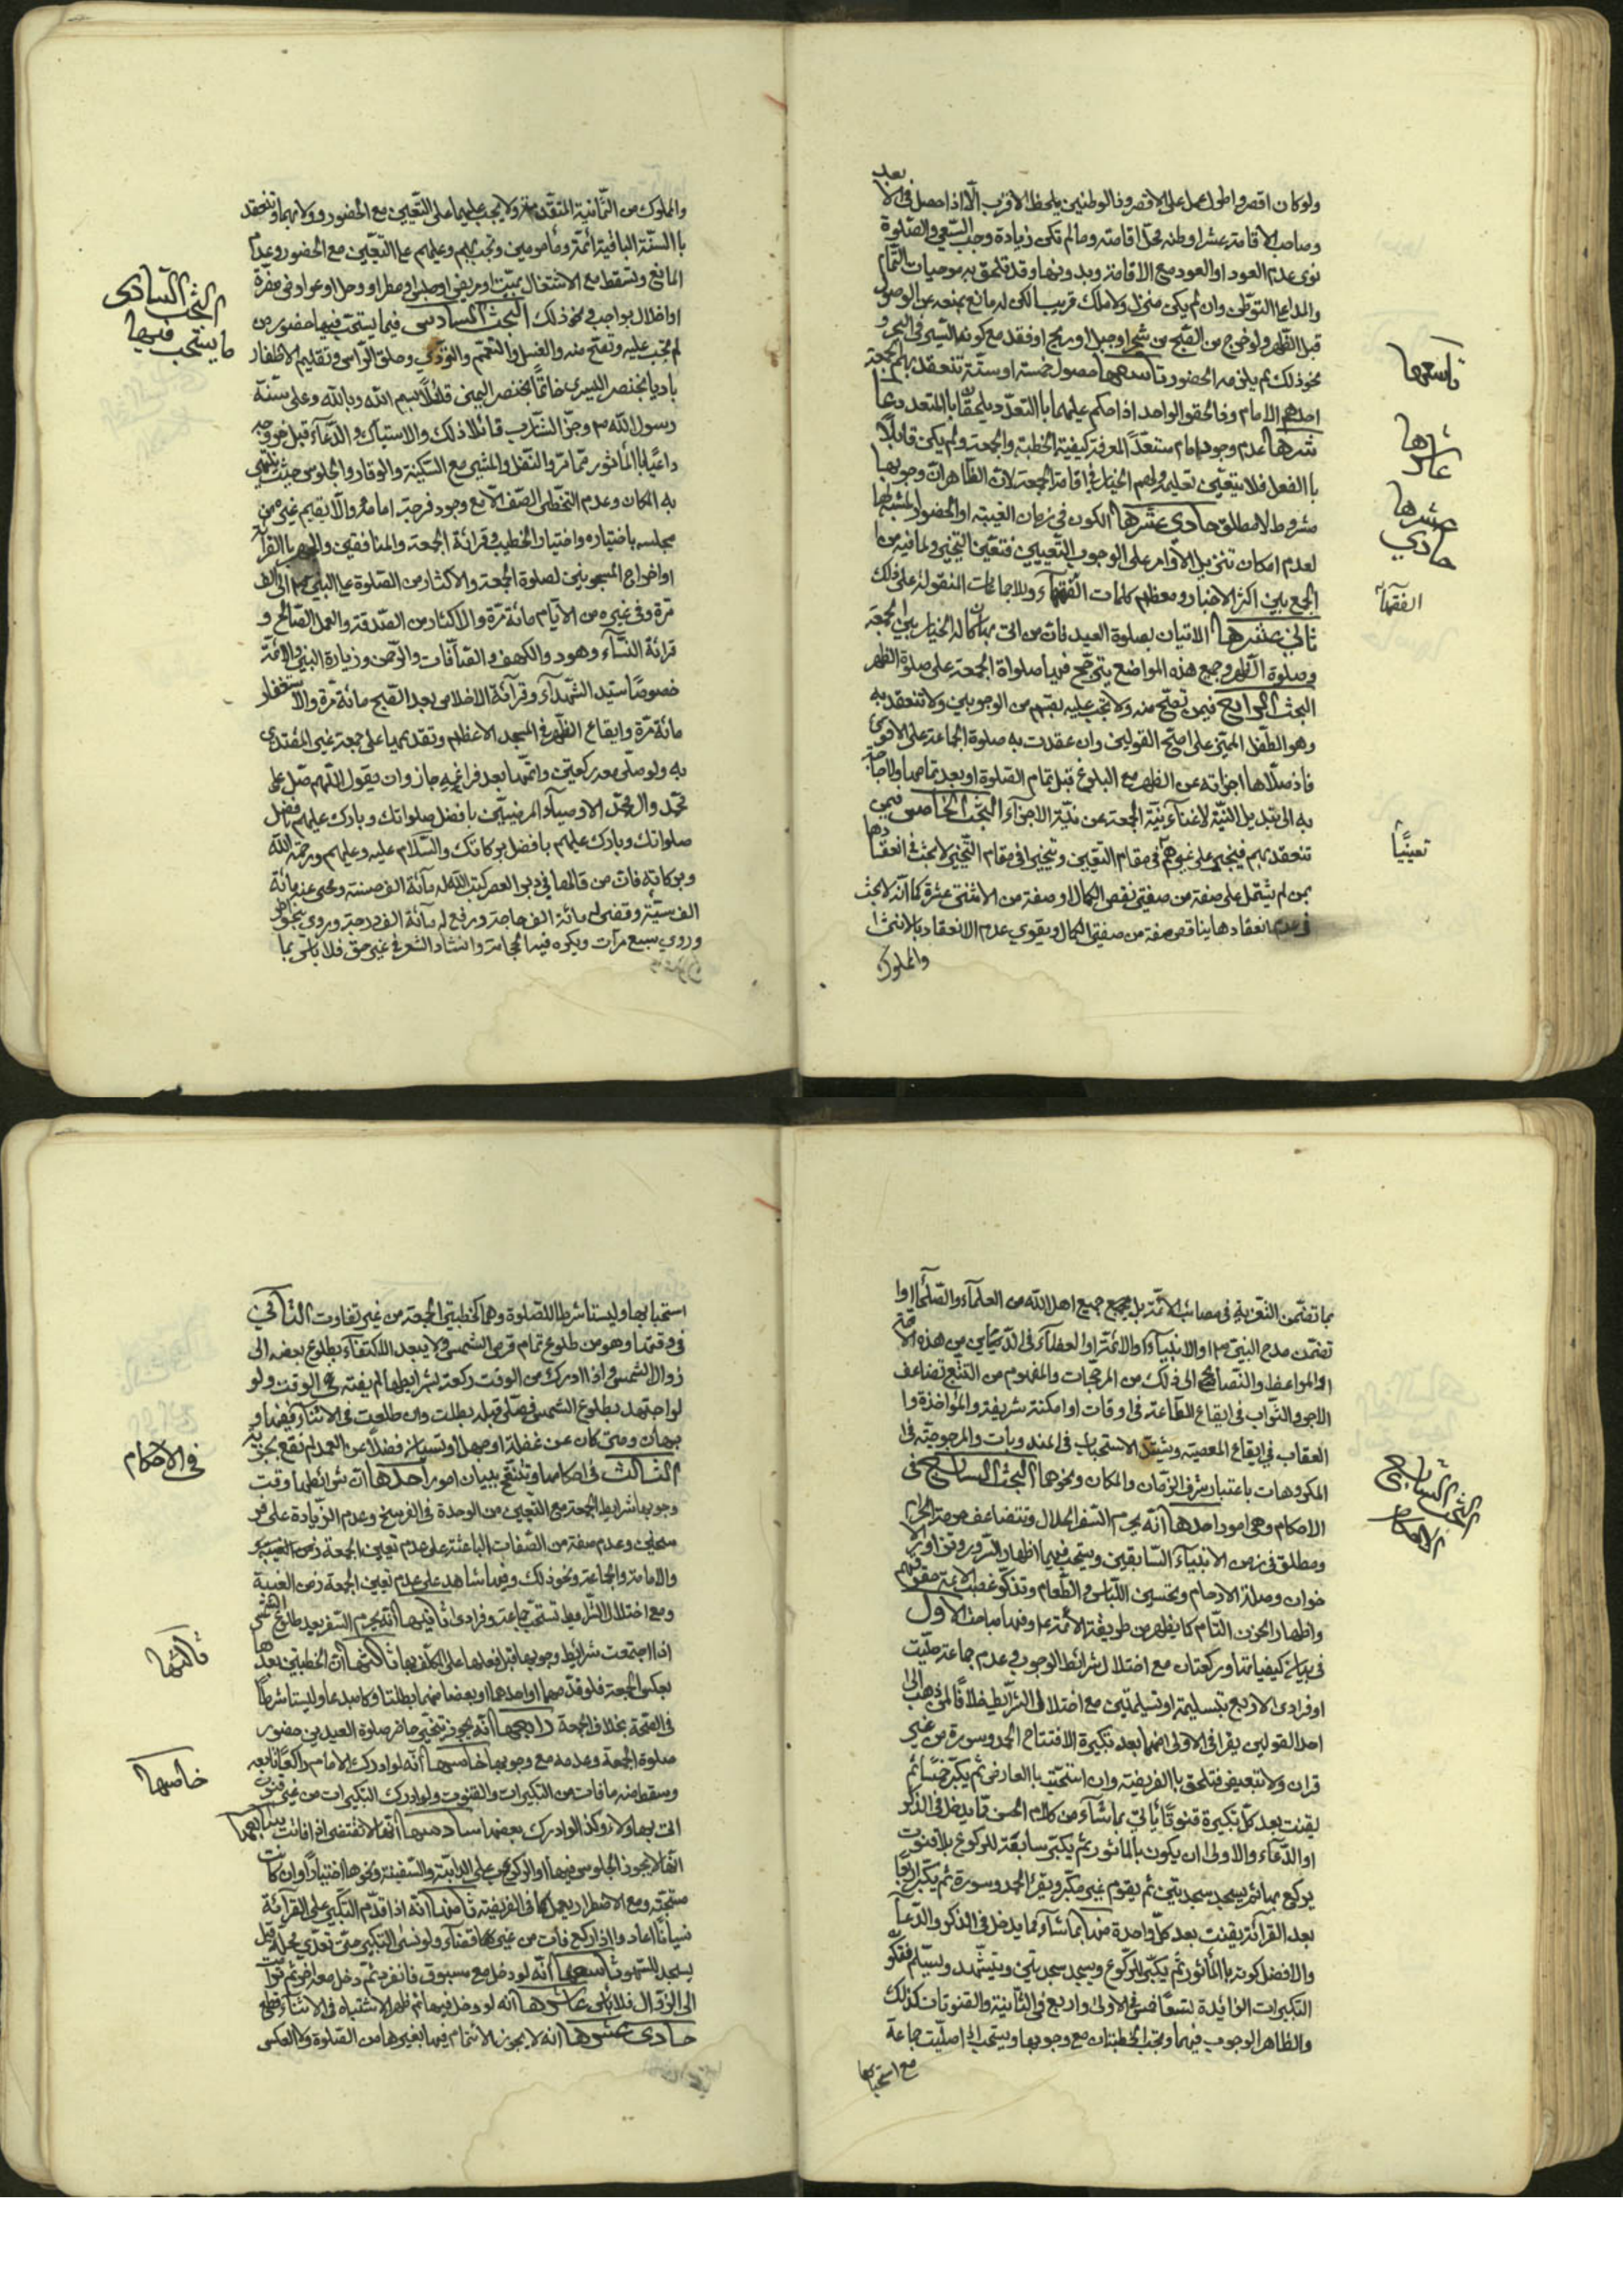 بعد
ولو كان اقصر واطول عمل على الاقصر وذا الوطنين يلحظ الاقرب الّا اذا حصل في الا
وصاحب الاقامة عشرا وطنه محلّ اقامته وما لم تكن زيادة وجب السّعي والصّلوة
نوى عدم العود او العود مع الاقامة وبدونها وقد تلحق به موجبات التّمام
والمدار على التوطّن وان لم يكن منزل ولا ملك قريب لكن له مانع يمنعه عن الوصول
قبل الظّهر ولو خرج من الصّبح من شجر او جبل او ريح او فقد مع كونه السّير في البحر و
نحو ذلك لم يلزمه الحضور تاسعها حصول خمسة او ستّة تنعقد بهم الجمعة
احدهم الامام
شرها عدم وجود امام مستعدّ لمعرفة كيفية الخطبة والجمعة ولم يكن قابلًا
باالفعل فلا يتعيّن تعليمه ولهم الخيار في اقامة الجمعة لانّ الظّاهر انّ وجوبها
مشروط لا مطلق حادي عشرها الكون في زمان الغيبة او الحضور المشبه لها
لعدم امكان تنزيل الاوامر على الوجوب التعييني فتعيّن التخييري لما فيه من
الجمع بين اكثر الاخبار ومعظم كلمات الفقهآء وللاجماعات المنقولة على ذلك
ثاني عشرها الاتيان بصلوة العيد فانّ من اتى بها كان له الخيار بين الجمعة
وصلوة الظّهر وجميع هذه المواضع يترجّح فيها صلواة الجمعة على صلوة الظهر
البحث الرابع فيمن تصحّ منه ولا تجب عليه بقسم من الوجوبين ولا تنعقد به
وهو الطّفل المميّز على اصحّ القولين وان عقدت به صلوة الجماعة على الاقوى
فاذا صلّاها اجزأته عن الظهر مع البلوغ قبل تمام الصّلوة او بعد تمامها ولا حاجة
به الى تبديل النيّة لاغنآء نيّة الجمعة عن نيّة الاجزآء البحث الخامس فيمن
تنعقد بهم فيجب على غيرهم في مقام التعيين وتخييرا في مقام التّخيير لا بحث في انعقادها
بمن لم يشتمل على صفة من صفتي نقص الكمال او صفة من الاثنتي عشرة كما انّه لا بحث
في عدم انعقادها بناقص صفة من صفتي الكمال ويقوي عدم الانعقاد بالانثى
والمملوك
تاسعها
عاشرها
حادي عشرها
الفقهآء
تعيينًا
والمملوك من الثّمانية المتقدّمة ولا يجب عليهما على التّعيين مع الحضور
باالستّة الباقية ائمّة ومأمومين وتجب بهم وعليهم على التعيّين مع الحضور وعدم
المانع وتسقط مع الاشتغال بميّت او مريض او حبس او مطر او وحل او عوار في سفرة
او اخلال بواجب في نحو ذلك البحث السادس فيما يستحب فيها حضور من
لم تجب عليه وتصحّ منه والغسل والتعمّم والتّردّي وحلق الرّأس وتقليم الاظفار
باديا بخنصر اليسرى خاتمًا بخنصر اليمنى قائلًا بسم اللّه وباللّه وعلى سنّة
رسول اللّه ص وجزّ الشّارب قائلا ذلك والاستياك والدّعآء قبل خروجه
داعيًا باالمأثور ممّا مرّ والتّنفّل والمشي مع السّكينة والوقار والجلوس حيث ينتهي
به المكان وعدم التخطّي الصّف الّا مع وجود فرجة امامه والّا بقيام غيره من
مجلسه باختياره واختيار الخطيب قرائة الجمعة والمنافقين والجهر باالقرآئة
واخراج المسجونين لصلوة الجمعة والاكثار من الصّلوة على النّبي ص الى الف
مرّة وفي غيره من الأيّام مائة مرّة والاكثار من الصّدقة والعمل الصّالح و
قرائة النّسآء وهود والكهف والصّآفات والرّحمن وزيارة النبيّ والائمّة
خصوصًا سيّد الشّهدآء وقرآئة الاخلاص بعد الصّبح مائة مرّة والاستغفار
مائة مرّة وايقاع الظّهر في المسجد الاعظم وتقديمها على جمعة غير المقتدى
به ولو صلّى معه ركعتين واتمّها بعد فراغه جاز وان يقول اللّهم صلّ على
محمّد وال محمّد الاوصيآء المرضيّين بافضل صلواتك وبارك عليهم بافضل
صلواتك وبارك عليهم بافضل بركاتك والسّلام عليه وعليهم ورحمة اللّه
وبركاته فانّ من قالها في دبر العصر كتب اللّه له مآئة الف حسنة ومحى عنه مائة
الف سيّئة وقضى له مائة الف حاجة ورفع له مآئة الف درجة وروي
وروي سبع مرّات ويكره فيها الحجامة وانشاد الشّعر في غير حق فلا بأس بما
البحث السّادس
ما يستحب فيها
بما تضمّن التّعزية في مصائب الائمّة بل جميع اهل اللّه من العلمآء والصّلحآء او ا
تضمّن مدح النبيّ ص او الانبيآء او الائمّة او العضلآء
او المواعظ والنّصائح الى غير ذلك من المرجّحات والمفهوم من التتبّع تضاعف
الاجر والثّواب في ايقاع الطّاعة في اوقات او امكنة شريفة والمؤاخذة وا
العقاب في ايقاع المعصية ويشتدّ الاستحباب في المندوبات والمرجوحيّة في
المكروهات باعتبار شرف الزّمان والمكان ونحوها البحث السابع في
الاحكام وهي امور احدها انّه يحرم السّفر الحلال وتتضاعف حرمة الحرام
ومطلق في زمن الانبيآء السّابقين ويستحب فيهما اظهار السّرور وتزاور الا
خوان وصلة الارحام وتحسين اللّباس والطّعام وتذكّر غصب الائمّة حقوقهم
واظهار الحزن التّام كما يظهر من طريقة الأئمّة ع وفيها مباحث الاول
في بيان كيفيّاتها وركعتان مع اختلال شرائط الوجوب وعدم جماعة صلّيت
او فرادى الاربع بتسليمة او تسليمتين مع اختلال الشّرائط خلافًا لمن ذهب الى
احد القولين يقرا في الاولى منهما بعد تكبيرة الافتتاح الحمد وسورة من غير
قران ولا تبعيض فتلحق باالفريضة وان استحبّت باالعارض ثم يكبّر خمسًا ثم
يقنت بعد كلّ تكبيرة قنوتًا يأتي بما شآء من كلام الحسن ممّا يدخل في الذّكر
او الدّعآء والاولى ان يكون باالماثور ثم يكبّر سابعة للرّكوع بلا قنوت
يركع بها ثم يسجد سجدتين ثم يقوم غير مكبّر ويقرا الحمد وسورة ثم يكبّر اربعًا
بعد القرائة يقنت بعد كلّ واحدة منها بما شآء كما يدخل في الذّكر والدّعآ
والافضل كونه باالمأثور ثم يكبّر للرّكوع ويسجد سجدتين ويتشهّد ويسلّم فتكو
التكبيرات الزائدة تسعًا خمس في الاولى واربع في الثّانية والقنوتات كذلك
والظاهر الوجوب فيهما وتجب الخطبتان مع وجوبها ويستحب ان صلّيت جماعة
مع استحبابها
البحث السابع في
الاحكام
استحبابها وليستا شرطا للصّلوة وهما كخطبتي الجمعة من غير تفاوت الثاني
في وقتها وهو من طلوع تمام قرص الشّمس ولا يبعد الاكتفآء بطلوع بعضه الى
زوال الشّمس واذا ادرك من الوقت ركعة بشرايطها لم يفته في الوقت ولو
لو اجتهد بطلوع الشّمس فصلّى قبله بطلت وان طلعت في الاثنآء
الثالث في احكامها وتتّضح ببيان امور احدها انّ شرائطها وقت
وجوبها شرايط الجمعة مع التّعيين من الوحدة في الفرسخ وعدم الزّيادة على فر
سخين وعدم صفة من الصّفات الباعثة على عدم تعيين الجمعة زمن الغيبة
والامامة والجماعة ونحو ذلك وفيها شاهد على عدم تعيين الجمعة زمن الغيبة
ومع اختلال الشّرايط تستحبّ جماعة وفرادى ثانيها انّه يحرم السّفر بعد طلوع الشّمس
اذا اجتمعت شرائط وجوبها قبل فعلها على المكلّف بها ثالثها انّ الخطبتين بعدها
بعكس الجمعة فلو قدّمهما او احدهما او بعضا منهما بطلتا وليستا شرطًا
في الصّحة بخلاف الجمعة رابعها انّه يجوز تخيّر حاضر صلوة العيد بين حضور
صلوة الجمعة وعدمه مع وجوبها خامسها انّه لو ادرك الامام راكعًا تابعه
وسقط منه ما فات من التكبيرات والقنوت ولو ادرك التكبيرات من غير قنوت
اتى بها ولاء وكذا لو ادرك بعضها سادسها انّها لا تقضى اذا فاتت سابعها
انّه لا يجوز الجلوس فيها او الرّكوب على الدابّة والسّفينة ونحوها اختيارًا وان كانت
مستحبّة ومع الاضطرار يعمل كما في الفريضة ثامنها انّه اذا قدّم التّكبير على القرآئة
نسيانًا اعاد
الى الزّوال فلا بأس عاشرها انّه لو دخل فيها ثم ظهر الاشتباه في الاثنآء قطع
حادي عشرها انّه لا يجوز الائتمام فيها بغيرها من الصّلوة ولا العكس
في الاحكام
ثالثها
خامسها